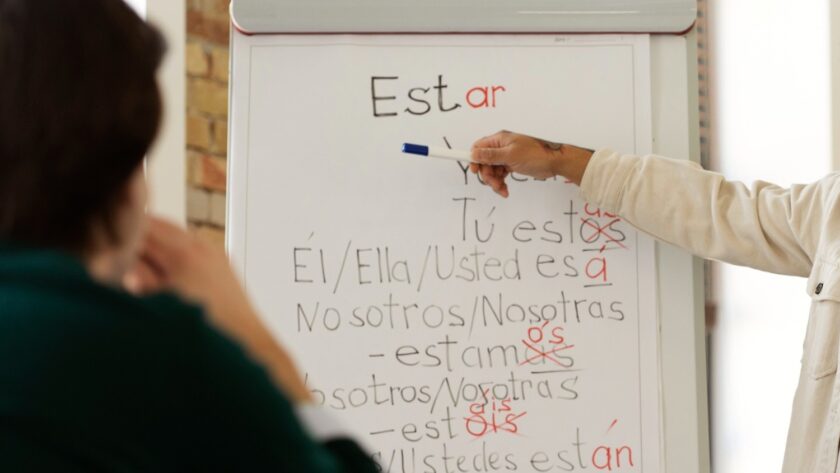 Estar
Yo
as
Tú estos
Él/Ella/Usted esá
Nosotros/Nosotras
ós
- estamas
osotros/Nosotras
áis
- estois
/Ustedes están